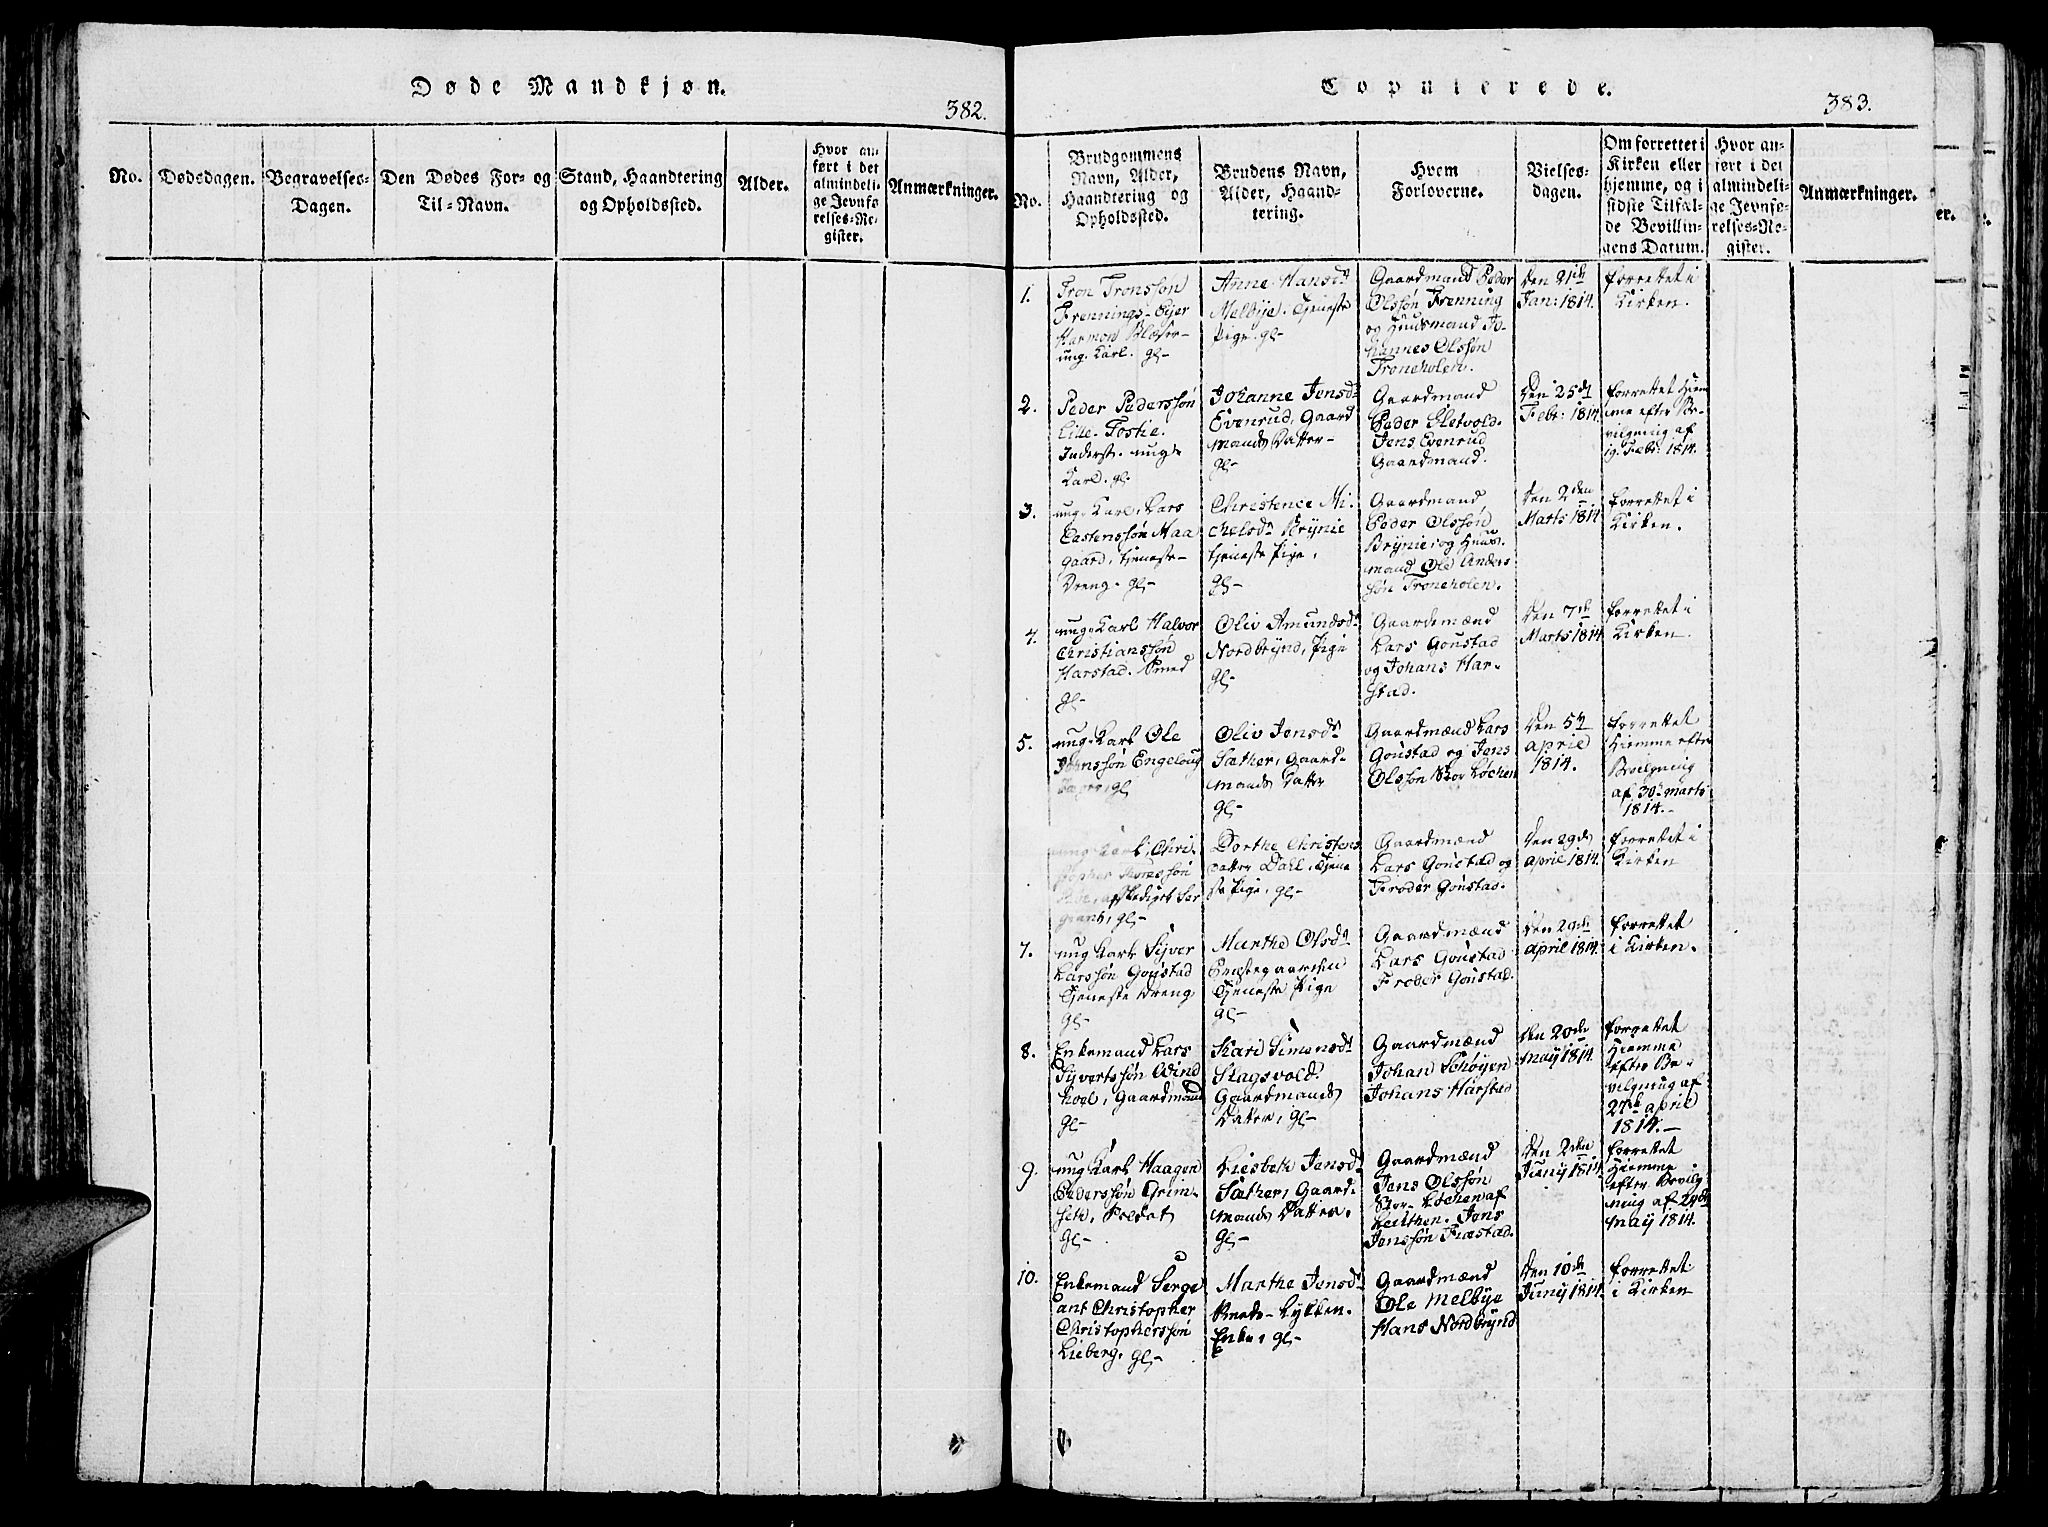 Døde Mandkjøn.
382.
No.
Dødsdagen.
Begravelses-
Dagen.
Den Dødes For- og
Til-Navn.
Stand, Haandtering
og Opholdssted.
Alder.
Hvor an-
ført i det
almindeli-
ge Jevnfø-
relses-Re-
gister.
Anmærkninger.
Copulerede.
383.
No.
Brudgommens
Navn, Alder,
Haandtering og
Opholdssted.
Brudens Navn,
Alder, Haand-
tering.
Hvem
Forloverne.
Vielses-
dagen.
Om forrettet i
Kirken eller
hjemme, og i
sidste Tilfæl-
de Bevillin-
gens Datum.
Hvor an-
ført i det
almindeli-
ge Jevnfø-
relses-Re-
gister.
Anmærkninger.
1.
Tron Tronssøn
Frennings-Eijer
ung. Karl. gl-
Anne Hansdr
Melbye. Tjeneste
Pige. gl-
Gaardmand Peder
Olssøn Frenning
og Huusmand Jo-
hannes Olssøn
Troneholen.
Den 21de
Jan: 1814.
forrettet i
Kirken.
2.
Peder Pederssøn
Lille-Tostie.
Inderst. ung
Karl. gl.
Johanne Jensdr
Evenrud, Gaard
mands Datter-
gl-
Gaardmand
Peder Sletvold.
Jens Evenrud
Gaardmand.
Den 25de
Febr: 1814.
forrettet Hiem
me efter Be-
vilgning af
19. Febr: 1814.
3.
ung. Karl, Lars
Castenssøn Maa-
gaard, tjeneste-
Dreng. gl-
Christence Mi-
chelsdr Brynie
tjeneste Pige,
gl-
Gaardmand
Peder Olssøn
Brynie, og Huus-
mand Ole Anders
søn Troneholen.
Den 2den
Marts 1814
forrettet i
Kirken.
4.
ung. Karl Halvor
Christianssøn
Harstad. Smed
gl-
Oliv Amundsdr
Nordbrynd, Pige
gl-
Gaardmænd
Lars Goustad
og Johans Har-
stad.
Den 7de
Marts 1814
forrettet i
Kirken.
5.
ung. Karl Ole
Johnssøn Engeloug
gl
Oliv Jensdr
Sæther, Gaard-
mands Datter
gl-
Gaardmænd Lars
Goustad og Jens
Olssøn Stor Løchen
Den 5te
april
1814.
forrettet
Hiemme efter
Bevilgning
af 30. marts
1814.-
ung Karl, Chri-
stopher
afskediget Ser
geant, gl-
Dorthe Christens
datter Dahl, Tjene
ste Pige, gl-
Gaardmænd
Lars Goustad og
Froder Goustad.
Den 29de
april 1814.
forrettet i
Kirken
7.
ung Karl Syver
Larssøn Goustad
Tjeneste Dreng
gl-
Marthe Olsdr
Præstegaarden
Tjeneste Pige
gl-
Gaardmænd
Lars Goustad
Froder Goustad.
Den 29de
april 1814.
forrettet
i Kirken.
8.
Enkemand Lars
Syvertssøn Wind
hoel, Gaardmand
gl-
Kari Simensdr
Skagsvold.
Gaardmands
Datter, gl-
Gaardmænd
Johan Schøyen
Johans Harstad
Den 20de
may 1814.
forrettet
Hiemme
efter Be-
vilgning af
27de april
1814.-
9.
ung Karl Haagen
Pederssøn Grim-
seth, Soldat
gl-
Liesbeth Jensdr
Sæther, Gaard-
mands Datter.
gl-
Gaardmænd
Jens Olssøn
Stor-Løchen af
Leuthen. Jens
Jenssøn Fiæstad.
Den 2den
Juny 1814.
forrettet
Hiemme
efter Bevilg
ning af 24de
may 1814.
10.
Enkemand Serge
ant Christopher
Christopherssøn
Lieberg. gl-
Marthe Jensdr
Sneds-Lykken.
Enke, gl-
Gaardmænd
Ole Melbye
Hans Nordbrynd
Den 10de
Juny 1814.
forrettet
i Kirken